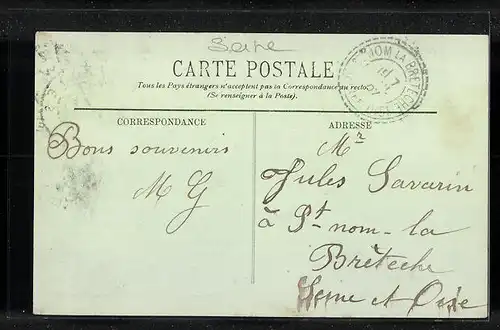 Seine
CARTE POSTALE
Tous les Pays étrangers n'acceptent pas la Correspondance au recto
(Se renseigner à la Poste).
NOM LA BRETECHE
CORRESPONDANCE
Bons souvenirs
M G
ADRESSE
Mr
Jules Savarin
à St-nom-la
Brèteche
Seine et Oise